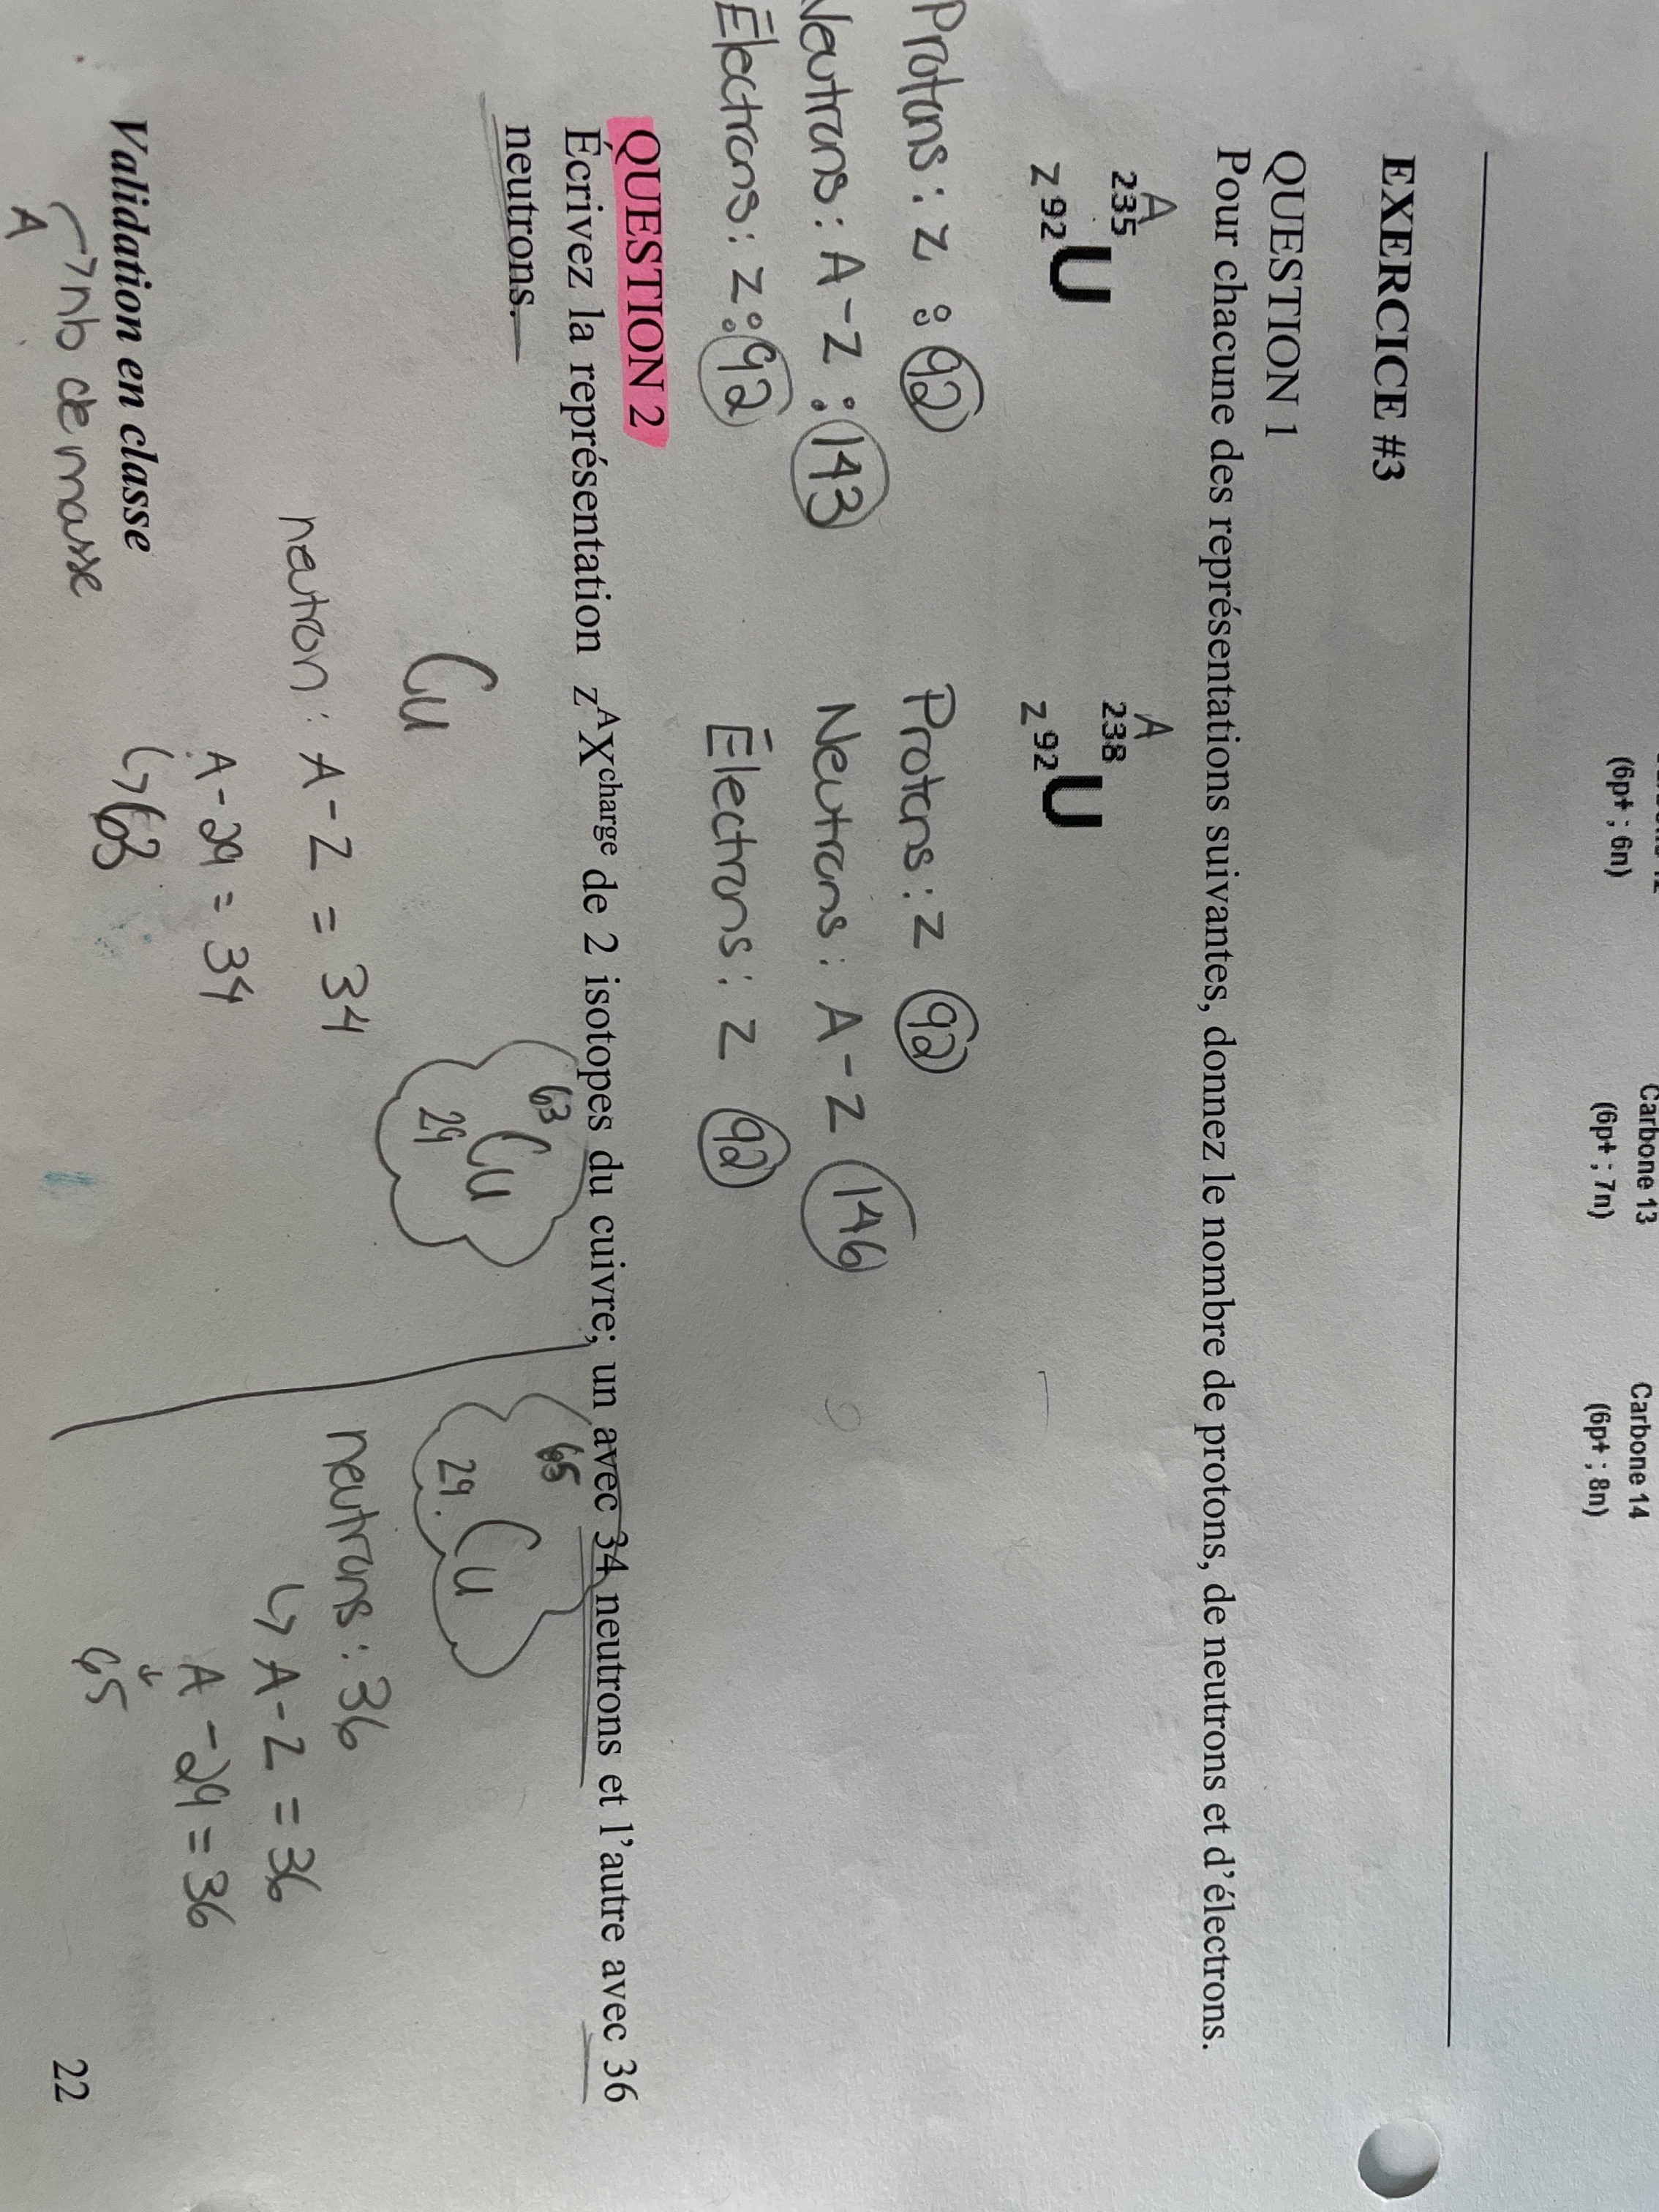 (6p+ ; 6n)
Carbone 13
(6p+ ; 7n)
Carbone 14
(6p+ ; 8n)
EXERCICE #3
QUESTION 1
Pour chacune des représentations suivantes, donnez le nombre de protons, de neutrons et d'électrons.
A
235
Z 92 U
A
238
Z 92 U
Protons : Z : 92
Neutrons : A - Z : 143
Électrons : Z : 92
Protons : Z 92
Neutrons : A - Z 146
Électrons : Z 92
QUESTION 2
Écrivez la représentation zAXcharge de 2 isotopes du cuivre; un avec 34 neutrons et l'autre avec 36
neutrons.
Cu
63
29 Cu
65
29 Cu
neutron : A - Z = 34
A - 29 = 34
↳ 63
neutrons : 36
↳ A - Z = 36
A - 29 = 36
↓
65
Validation en classe
nb de masse
A
22